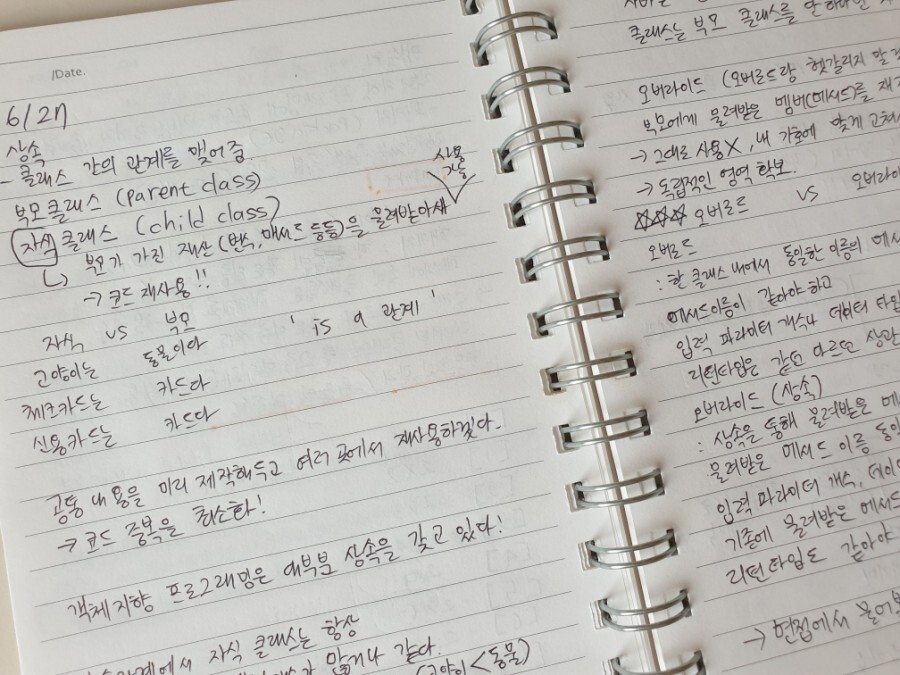 /Date.
6/27
상속
- 클래스 간의 관계를 맺어줌
부모클래스 (Parent class)
자식 클래스 (child class)
↳ 부모가 가진 재산(변수, 메서드 등등)을 물려받아서 사용 가능
→ 코드 재사용!!
자식 vs 부모 'is a 관계'
고양이는 동물이다
체크카드는 카드다
신용카드는 카드다
공통 내용을 미리 제작해두고 여러 곳에서 재사용하겠다.
→ 코드 중복을 최소화!
객체지향 프로그래밍은 대부분 상속을 갖고 있다!
자식 클래스는 항상
많거나 같다.
(고양이 < 동물)
클래스는 부모 클래스를 단 하나만
오버라이드 (오버로드랑 헷갈리지 말
부모에게 물려받은 멤버(메서드)를 재
→ 그대로 사용 X, 내 기호에 맞게 고쳐서
→ 독립적인 영역 확보.
☆☆☆ 오버로드 vs 오버라이
오버로드
: 한 클래스 내에서 동일한 이름의 메서
메서드이름이 같아야 하고
입력 파라미터 개수나 데이터 타입
리턴타입은 같던 다르던 상관
오버라이드 (상속)
: 상속을 통해 물려받은 메
물려받은 메서드 이름 동일
입력 파라미터 개수, 데이
기존에 물려받은 메서드
리턴타입도 같아야
→ 현업에서 물어보